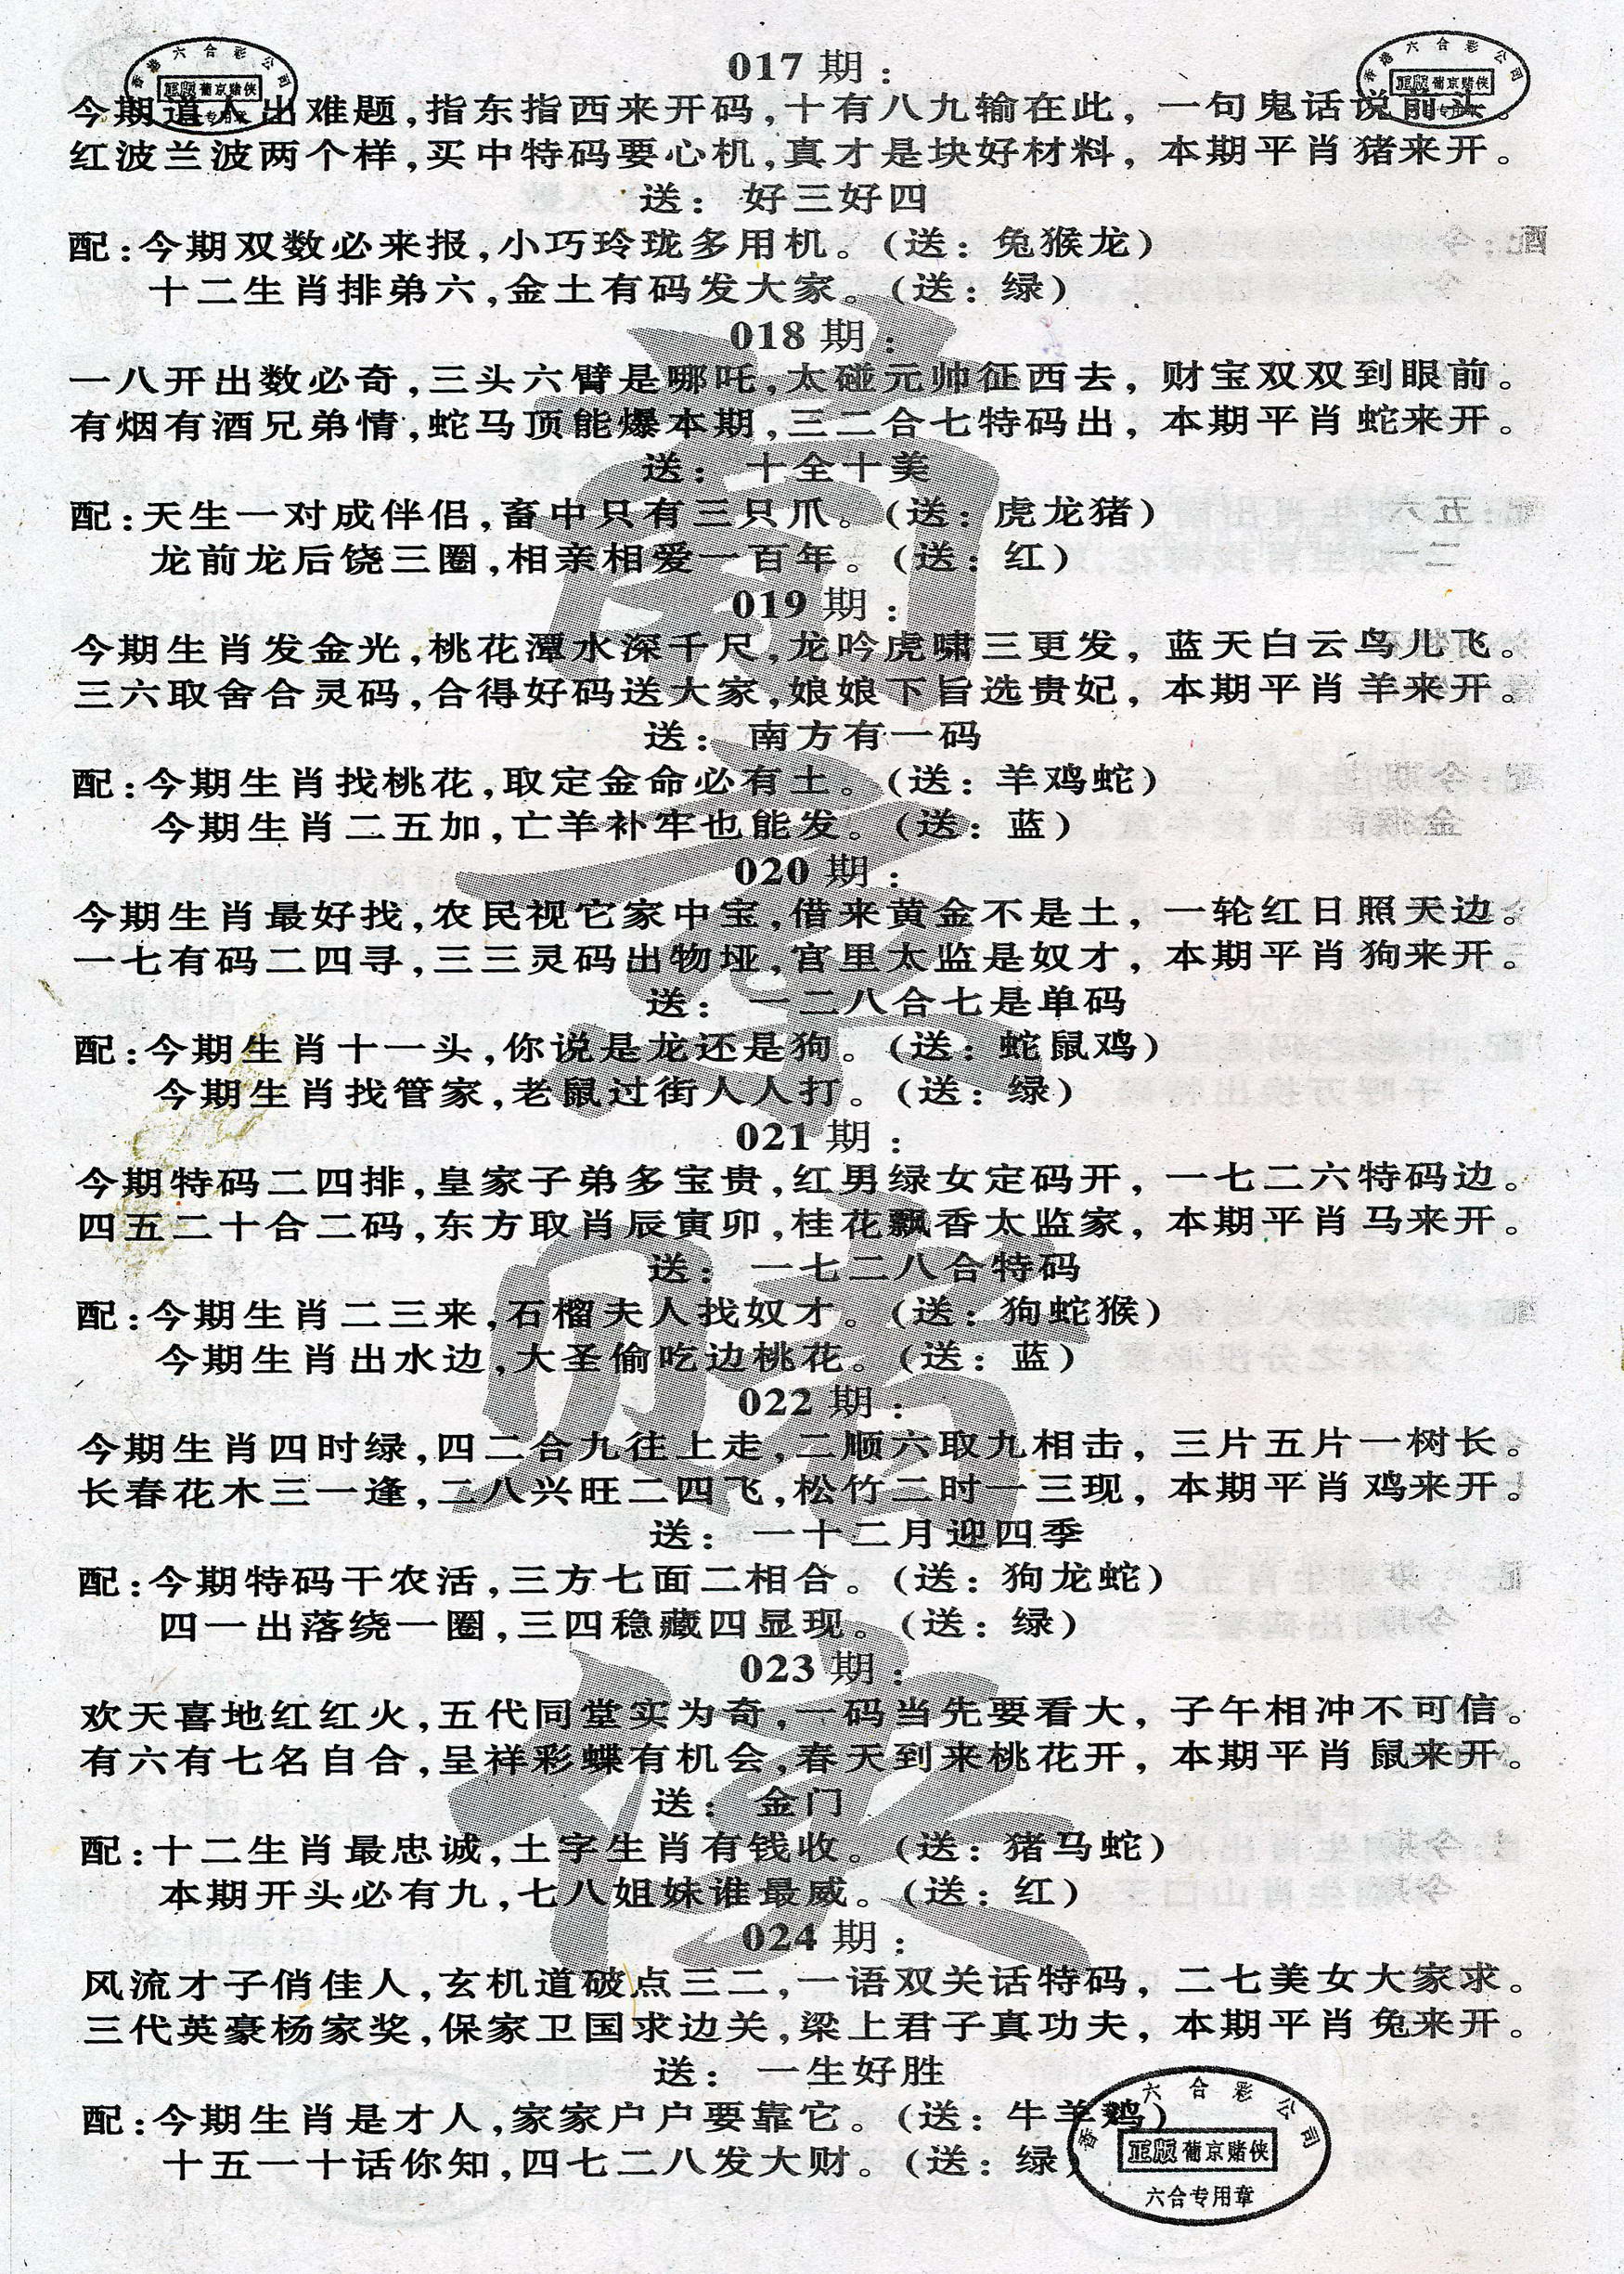 香港六合彩公司
正版 葡京赌侠
专用章
香港六合彩公司
正版 葡京赌侠
专用章
017 期：
今期道人出难题,指东指西来开码,十有八九输在此,一句鬼话说前头。
红波兰波两个样,买中特码要心机,真才是块好材料,本期平肖 猪来开。
送：好三好四
配:今期双数必来报,小巧玲珑多用机。(送：兔猴龙)
十二生肖排弟六,金土有码发大家。(送：绿)
018 期：
一八开出数必奇,三头六臂是哪吒,太碰元帅征西去,财宝双双到眼前。
有烟有酒兄弟情,蛇马顶能爆本期,三二合七特码出,本期平肖 蛇来开。
送：十全十美
配:天生一对成伴侣,畜中只有三只爪。(送：虎龙猪)
龙前龙后饶三圈,相亲相爱一百年。(送：红)
019 期：
今期生肖发金光,桃花潭水深千尺,龙吟虎啸三更发,蓝天白云鸟儿飞。
三六取舍合灵码,合得好码送大家,娘娘下旨选贵妃,本期平肖 羊来开。
送：南方有一码
配:今期生肖找桃花,取定金命必有土。(送：羊鸡蛇)
今期生肖二五加,亡羊补牢也能发。(送：蓝)
020 期：
今期生肖最好找,农民视它家中宝,借来黄金不是土,一轮红日照天边。
一七有码二四寻,三三灵码出物垭,宫里太监是奴才,本期平肖 狗来开。
送：一二八合七是单码
配:今期生肖十一头,你说是龙还是狗。(送：蛇鼠鸡)
今期生肖找管家,老鼠过街人人打。(送：绿)
021 期：
今期特码二四排,皇家子弟多宝贵,红男绿女定码开,一七二六特码边。
四五二十合二码,东方取肖辰寅卯,桂花飘香太监家,本期平肖 马来开。
送：一七二八合特码
配:今期生肖二三来,石榴夫人找奴才。(送：狗蛇猴)
今期生肖出水边,大圣偷吃边桃花。(送：蓝)
022 期：
今期生肖四时绿,四二合九往上走,二顺六取九相击,三片五片一树长。
长春花木三一逢,二八兴旺二四飞,松竹二时一三现,本期平肖 鸡来开。
送：一十二月迎四季
配:今期特码干农活,三方七面二相合。(送：狗龙蛇)
四一出落绕一圈,三四稳藏四显现。(送：绿)
023 期：
欢天喜地红红火,五代同堂实为奇,一码当先要看大,子午相冲不可信。
有六有七名自合,呈祥彩蝶有机会,春天到来桃花开,本期平肖 鼠来开。
送：金门
配:十二生肖最忠诚,土字生肖有钱收。(送：猪马蛇)
本期开头必有九,七八姐妹谁最威。(送：红)
024 期：
风流才子俏佳人,玄机道破点三二,一语双关话特码,二七美女大家求。
三代英豪杨家奖,保家卫国求边关,梁上君子真功夫,本期平肖 兔来开。
送：一生好胜
配:今期生肖是才人,家家户户要靠它。(送：牛羊鸡)
十五一十话你知,四七二八发大财。(送：绿)
香港六合彩公司
正版 葡京赌侠
六合专用章
葡京赌侠